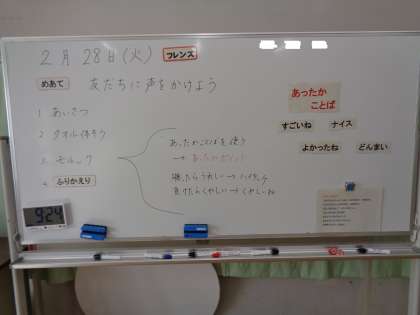 2月28日(火) フレンズ
めあて 友だちに声をかけよう
1 あいさつ
2 タオル体そう
3 モルック
4 ふりかえり
あったかことばを使う
→ あったかポイント
勝ったらうれしい→ハイタッチ
負けたらくやしい→くやしいね
あったか
ことば
すごいね ナイス
よかったね どんまい
9:24